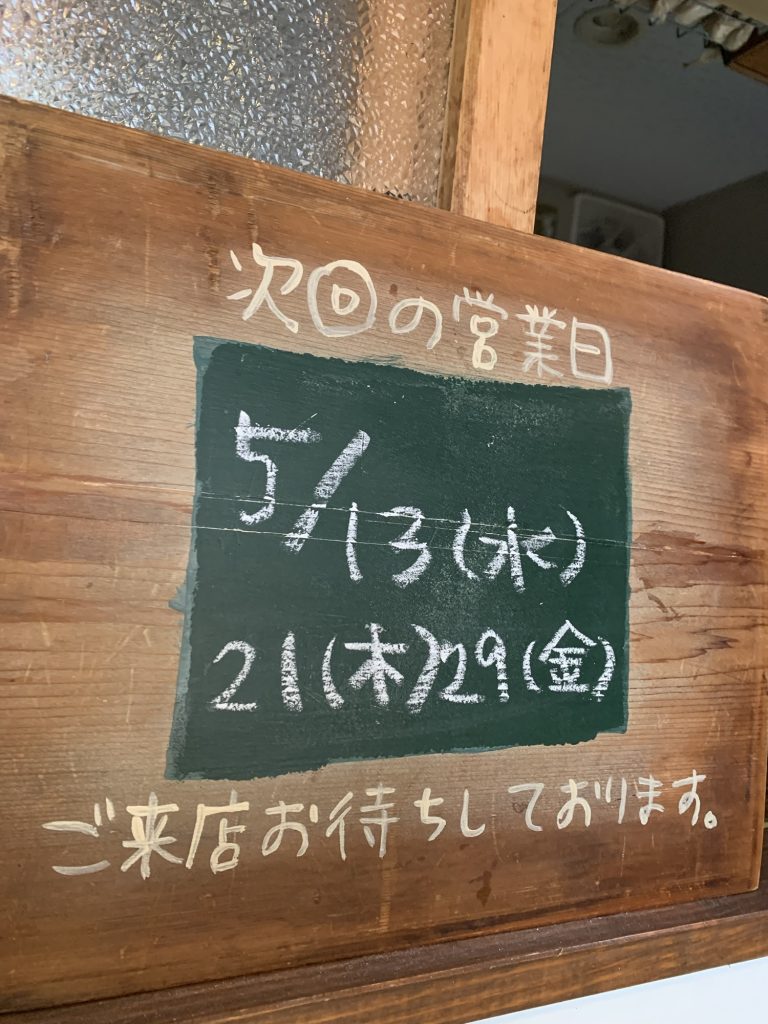 次回の営業日
5/13(水)
21(木)29(金)
ご来店お待ちしております。